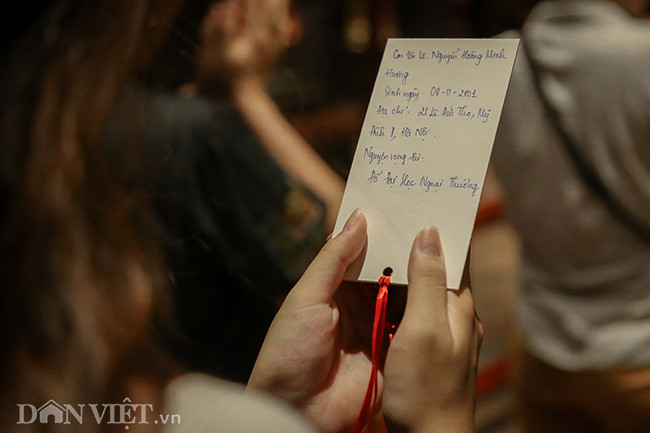 Con tên là: Nguyễn Hoàng Minh
Hương
Sinh ngày: 08-11-2001
Địa chỉ: 21 Lê Đức Thọ, Mỹ
Đình 1, Hà Nội.
Nguyện vọng là:
Đỗ Đại Học Ngoại Thương
DÂN VIỆT.vn